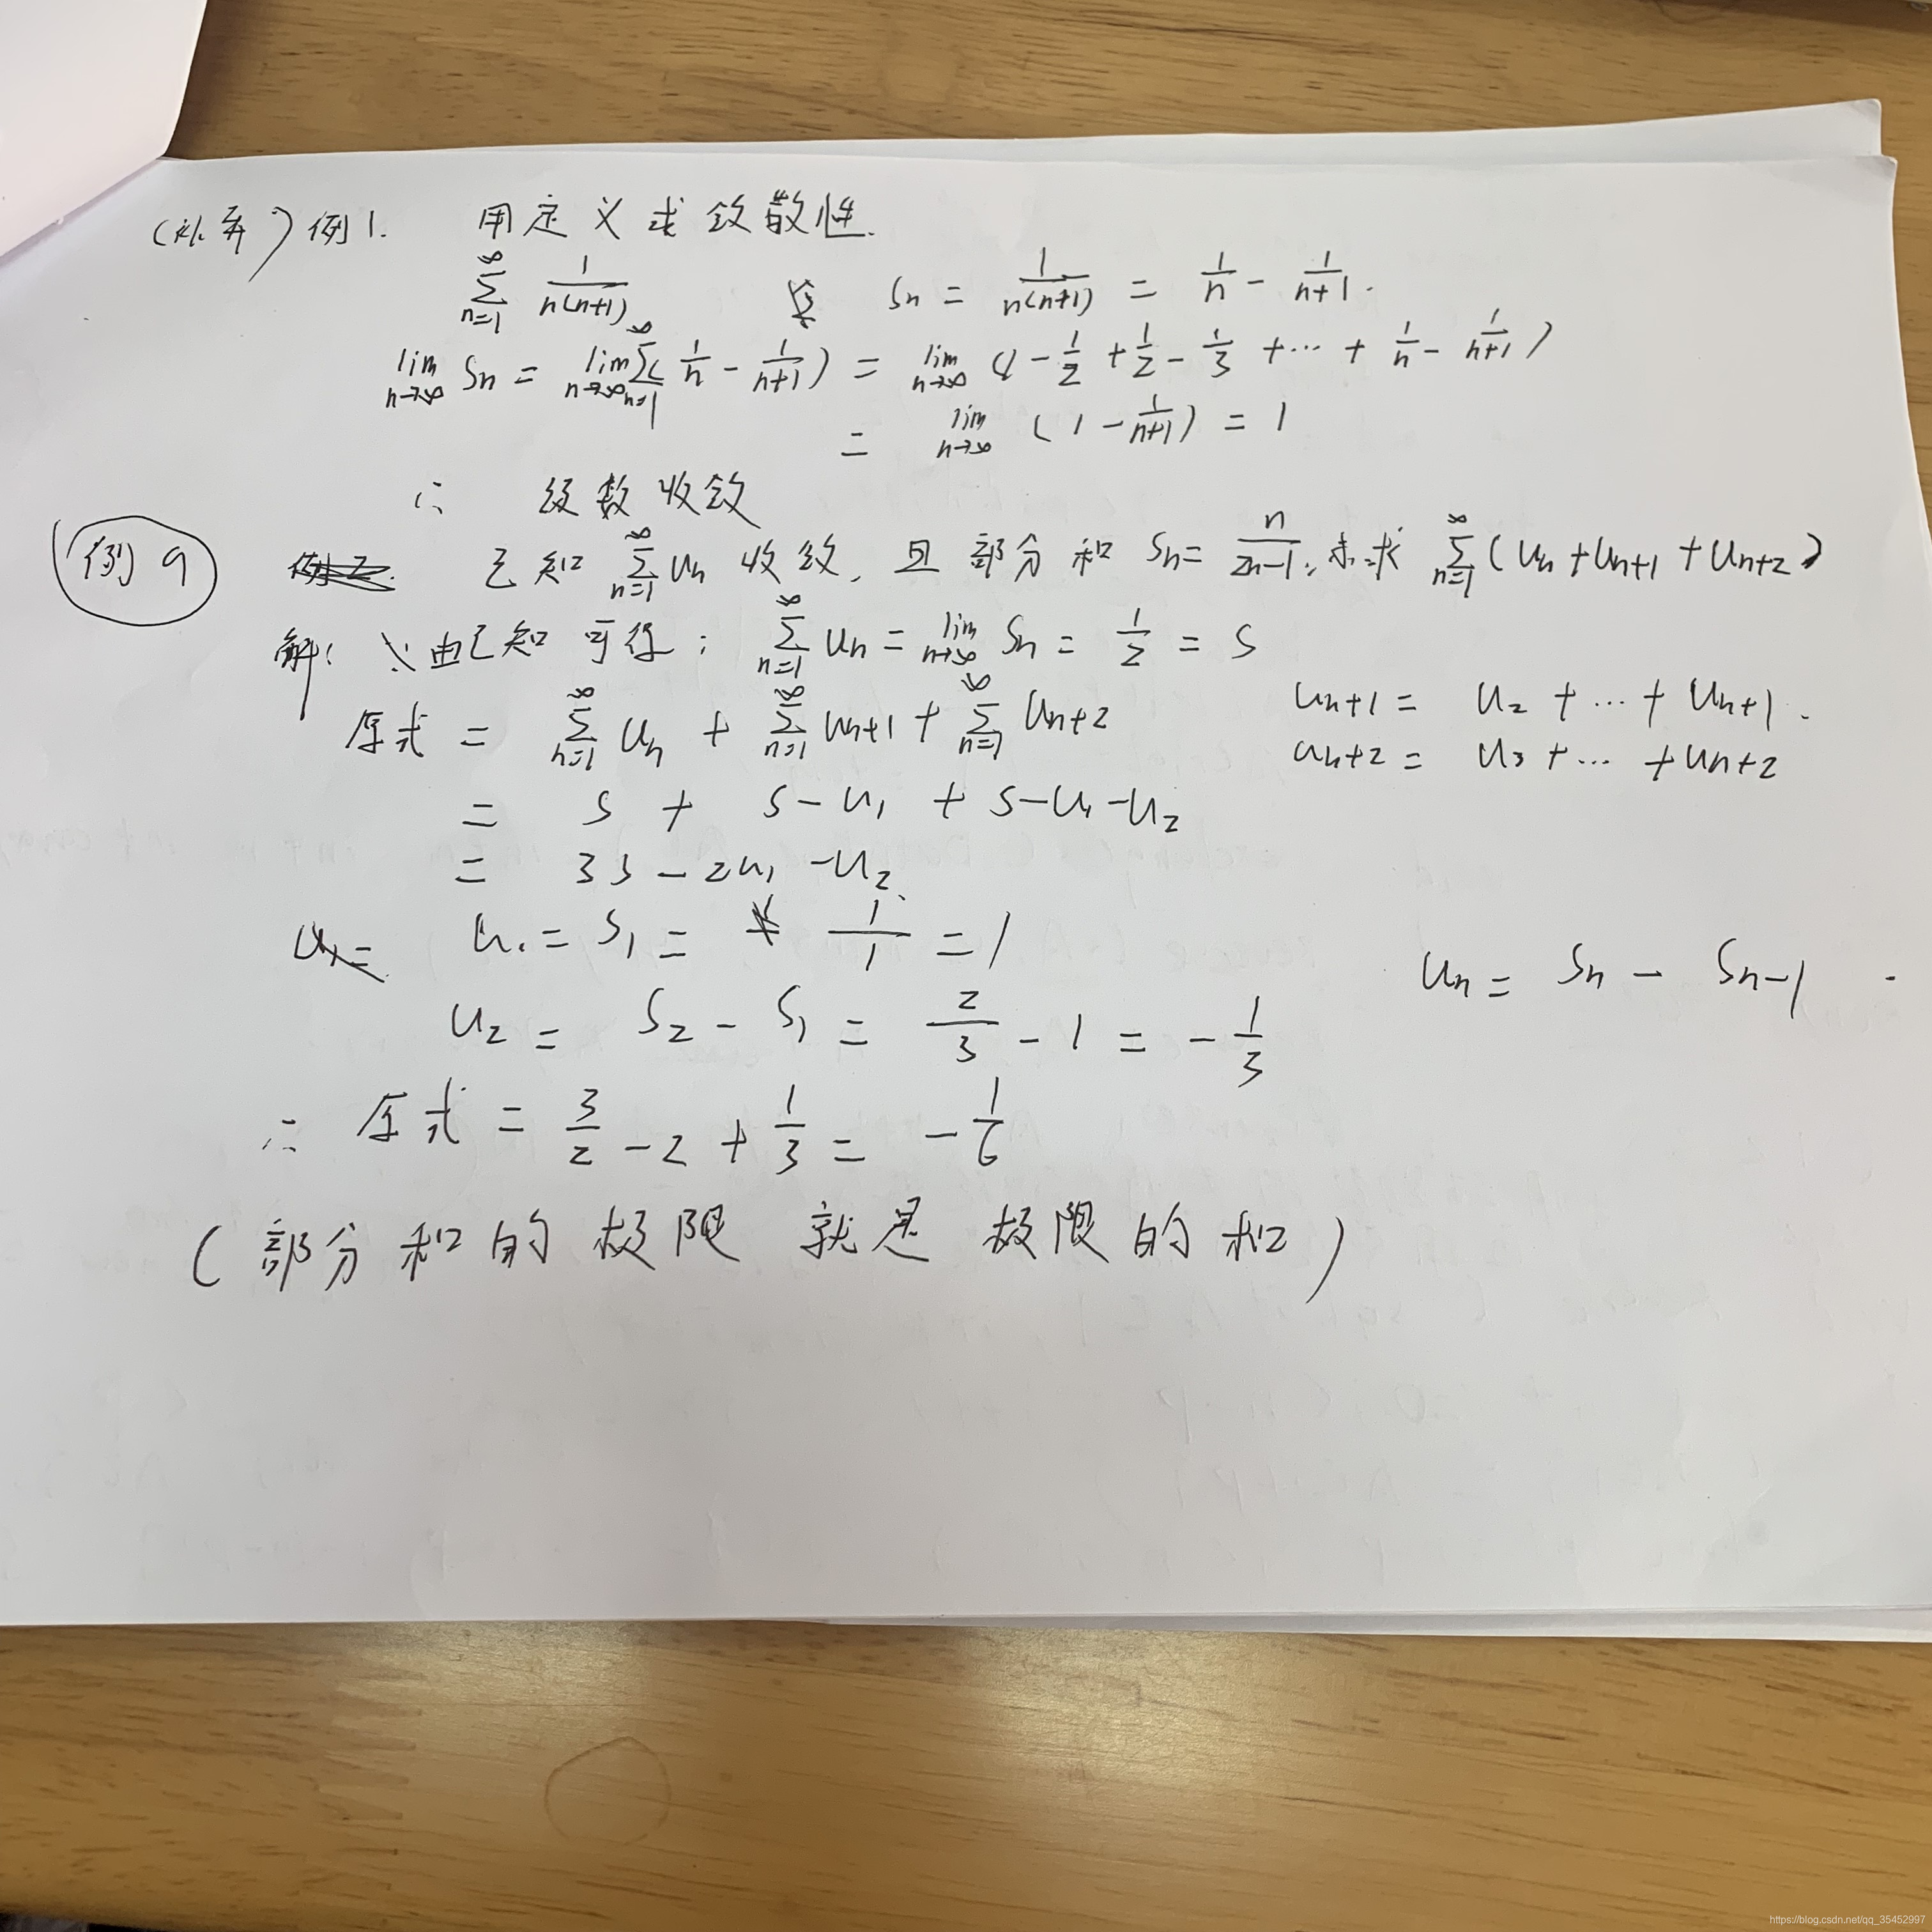 (补弃) 例1. 用定义求敛散性.
∞∑n=1 1/n(n+1) Sn = 1/n(n+1) = 1/n - 1/n+1.
lim n→∞ Sn = lim n→∞ ∞∑n=1 ( 1/n - 1/n+1 ) = lim n→∞ (1 - 1/2 + 1/2 - 1/3 + ... + 1/n - 1/n+1 )
= lim n→∞ ( 1 - 1/n+1 ) = 1
∴ 级数收敛
例9 已知 ∞∑n=1 un 收敛, 且部分和 Sn = n/2n-1, 求 ∞∑n=1 (un + un+1 + un+2)
解: 由已知可得: ∞∑n=1 un = lim n→∞ Sn = 1/2 = S
原式 = ∞∑n=1 un + ∞∑n=1 un+1 + ∞∑n=1 un+2
un+1 = u2 + ... + un+1.
un+2 = u3 + ... + un+2
= S + S - u1 + S - u1 - u2
= 3S - 2u1 - u2.
u1 = S1 = 1/1 = 1
un = Sn - Sn-1
u2 = S2 - S1 = 2/3 - 1 = - 1/3
∴ 原式 = 3/2 - 2 + 1/3 = - 1/6
(部分和的极限 就是 极限的和)
https://blog.csdn.net/qq_35452997